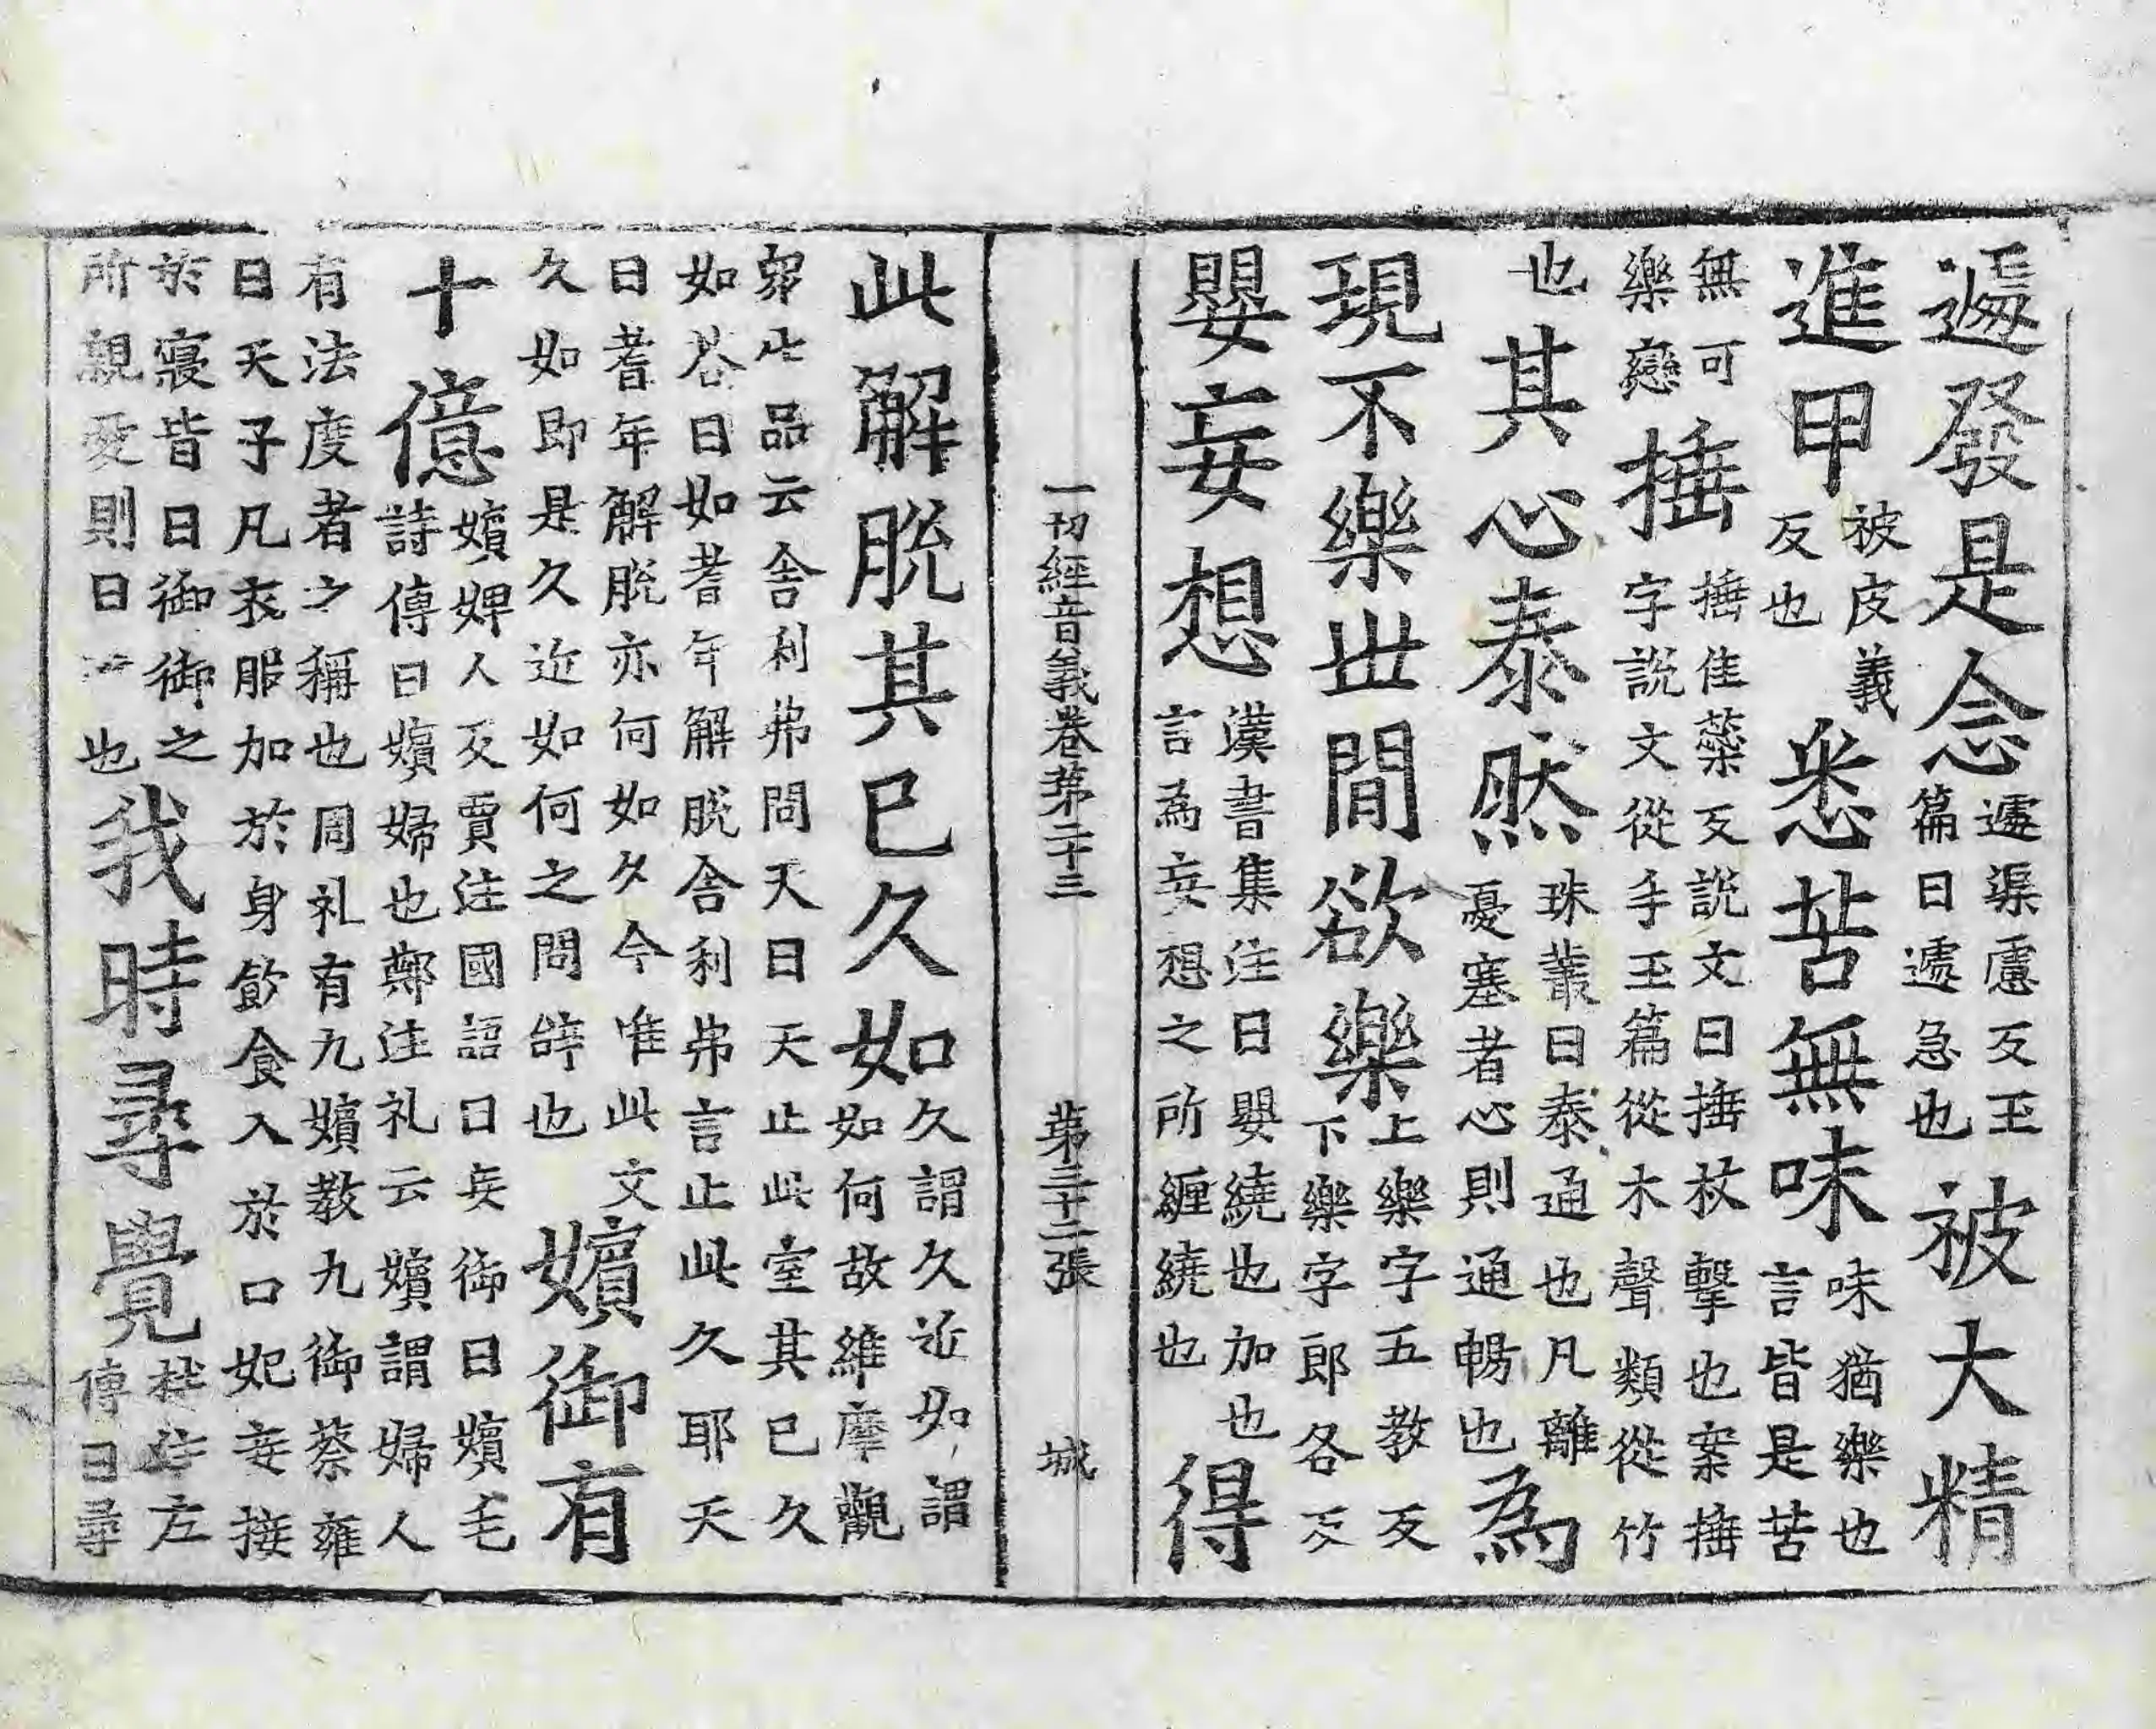 遽發是念遽渠慮反玉篇曰遽急也被大精
進甲被皮義反也悉苦無味味猶樂也言皆是苦
無可樂戀捶捶佳蘂反說文曰捶杖擊也案捶字說文從手玉篇從木聲類從竹
也其心泰然珠叢曰泰通也凡離憂塞者心則通暢也為
現不樂世間欲樂上樂字五教反下樂字郎各反
嬰妄想漢書集注曰嬰繞也加也言為妄想之所纏繞也得
一切經音義卷第二十三 第三十二張 城
此解脫其已久如久謂久近如謂如何故維摩觀
品云舍利弗問天曰天止此室其已久如答曰如耆年解脫舍利弗言止此久耶天
曰耆年解脫亦何如久今唯此文久如即是久近如何之問辝也嬪御有
十億嬪婢人反賈注國語曰矣御曰嬪毛詩傳曰嬪婦也鄭注礼云嬪謂婦人
有法度者之稱也周礼有九嬪教九御蔡雍曰天子凡衣服加於身飲食入於口妃妾接
於寢皆曰御御之所親愛則曰也我時尋覺左傳曰尋